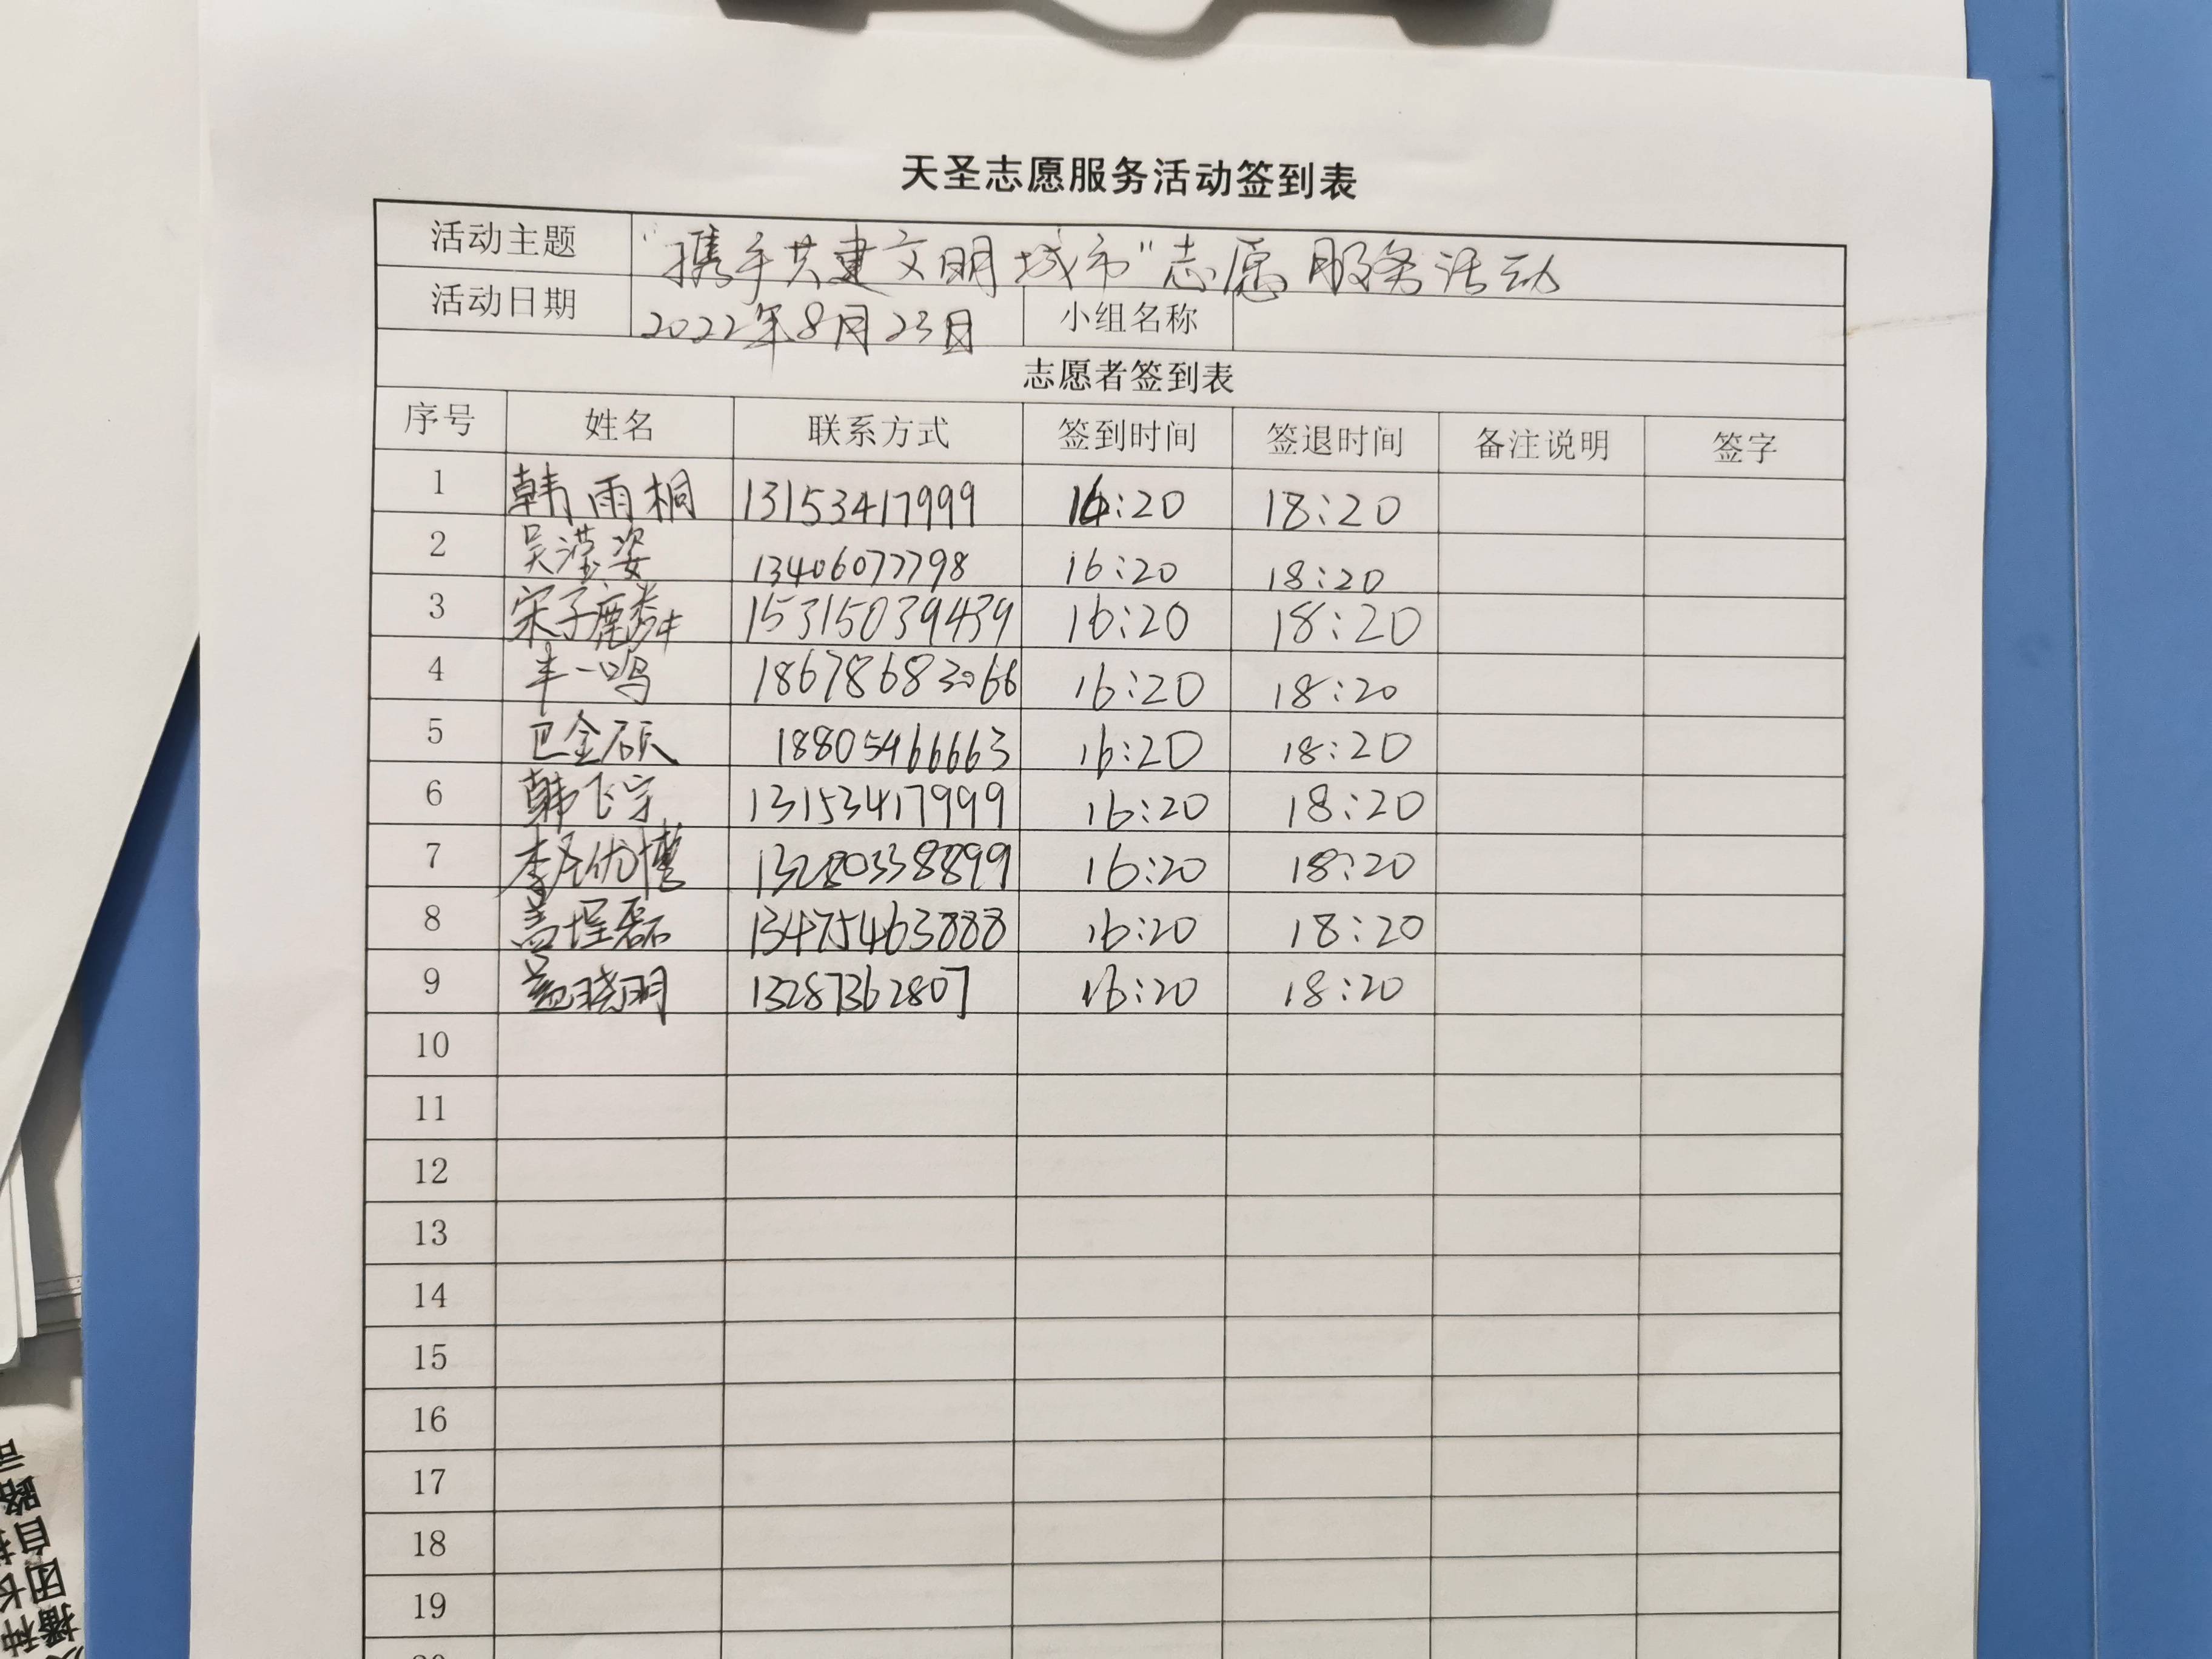 天圣志愿服务活动签到表
活动主题 "携手共建文明城市"志愿服务活动
活动日期 2022年8月23日 小组名称
志愿者签到表
序号 姓名 联系方式 签到时间 签退时间 备注说明 签字
1 韩雨桐 13153417999 16:20 18:20
2 吴滢姿 13406077798 16:20 18:20
3 宋子麟 15315039439 16:20 18:20
4 丰一鸣 18678683066 16:20 18:20
5 巴金辰 18805466663 16:20 18:20
6 韩飞宇 13153417999 16:20 18:20
7 李圣优博 13280338899 16:20 18:20
8 盖埕磊 13475463888 16:20 18:20
9 盖晓明 13287362807 16:20 18:20
10
11
12
13
14
15
16
17
18
19
路
自
团长
播种